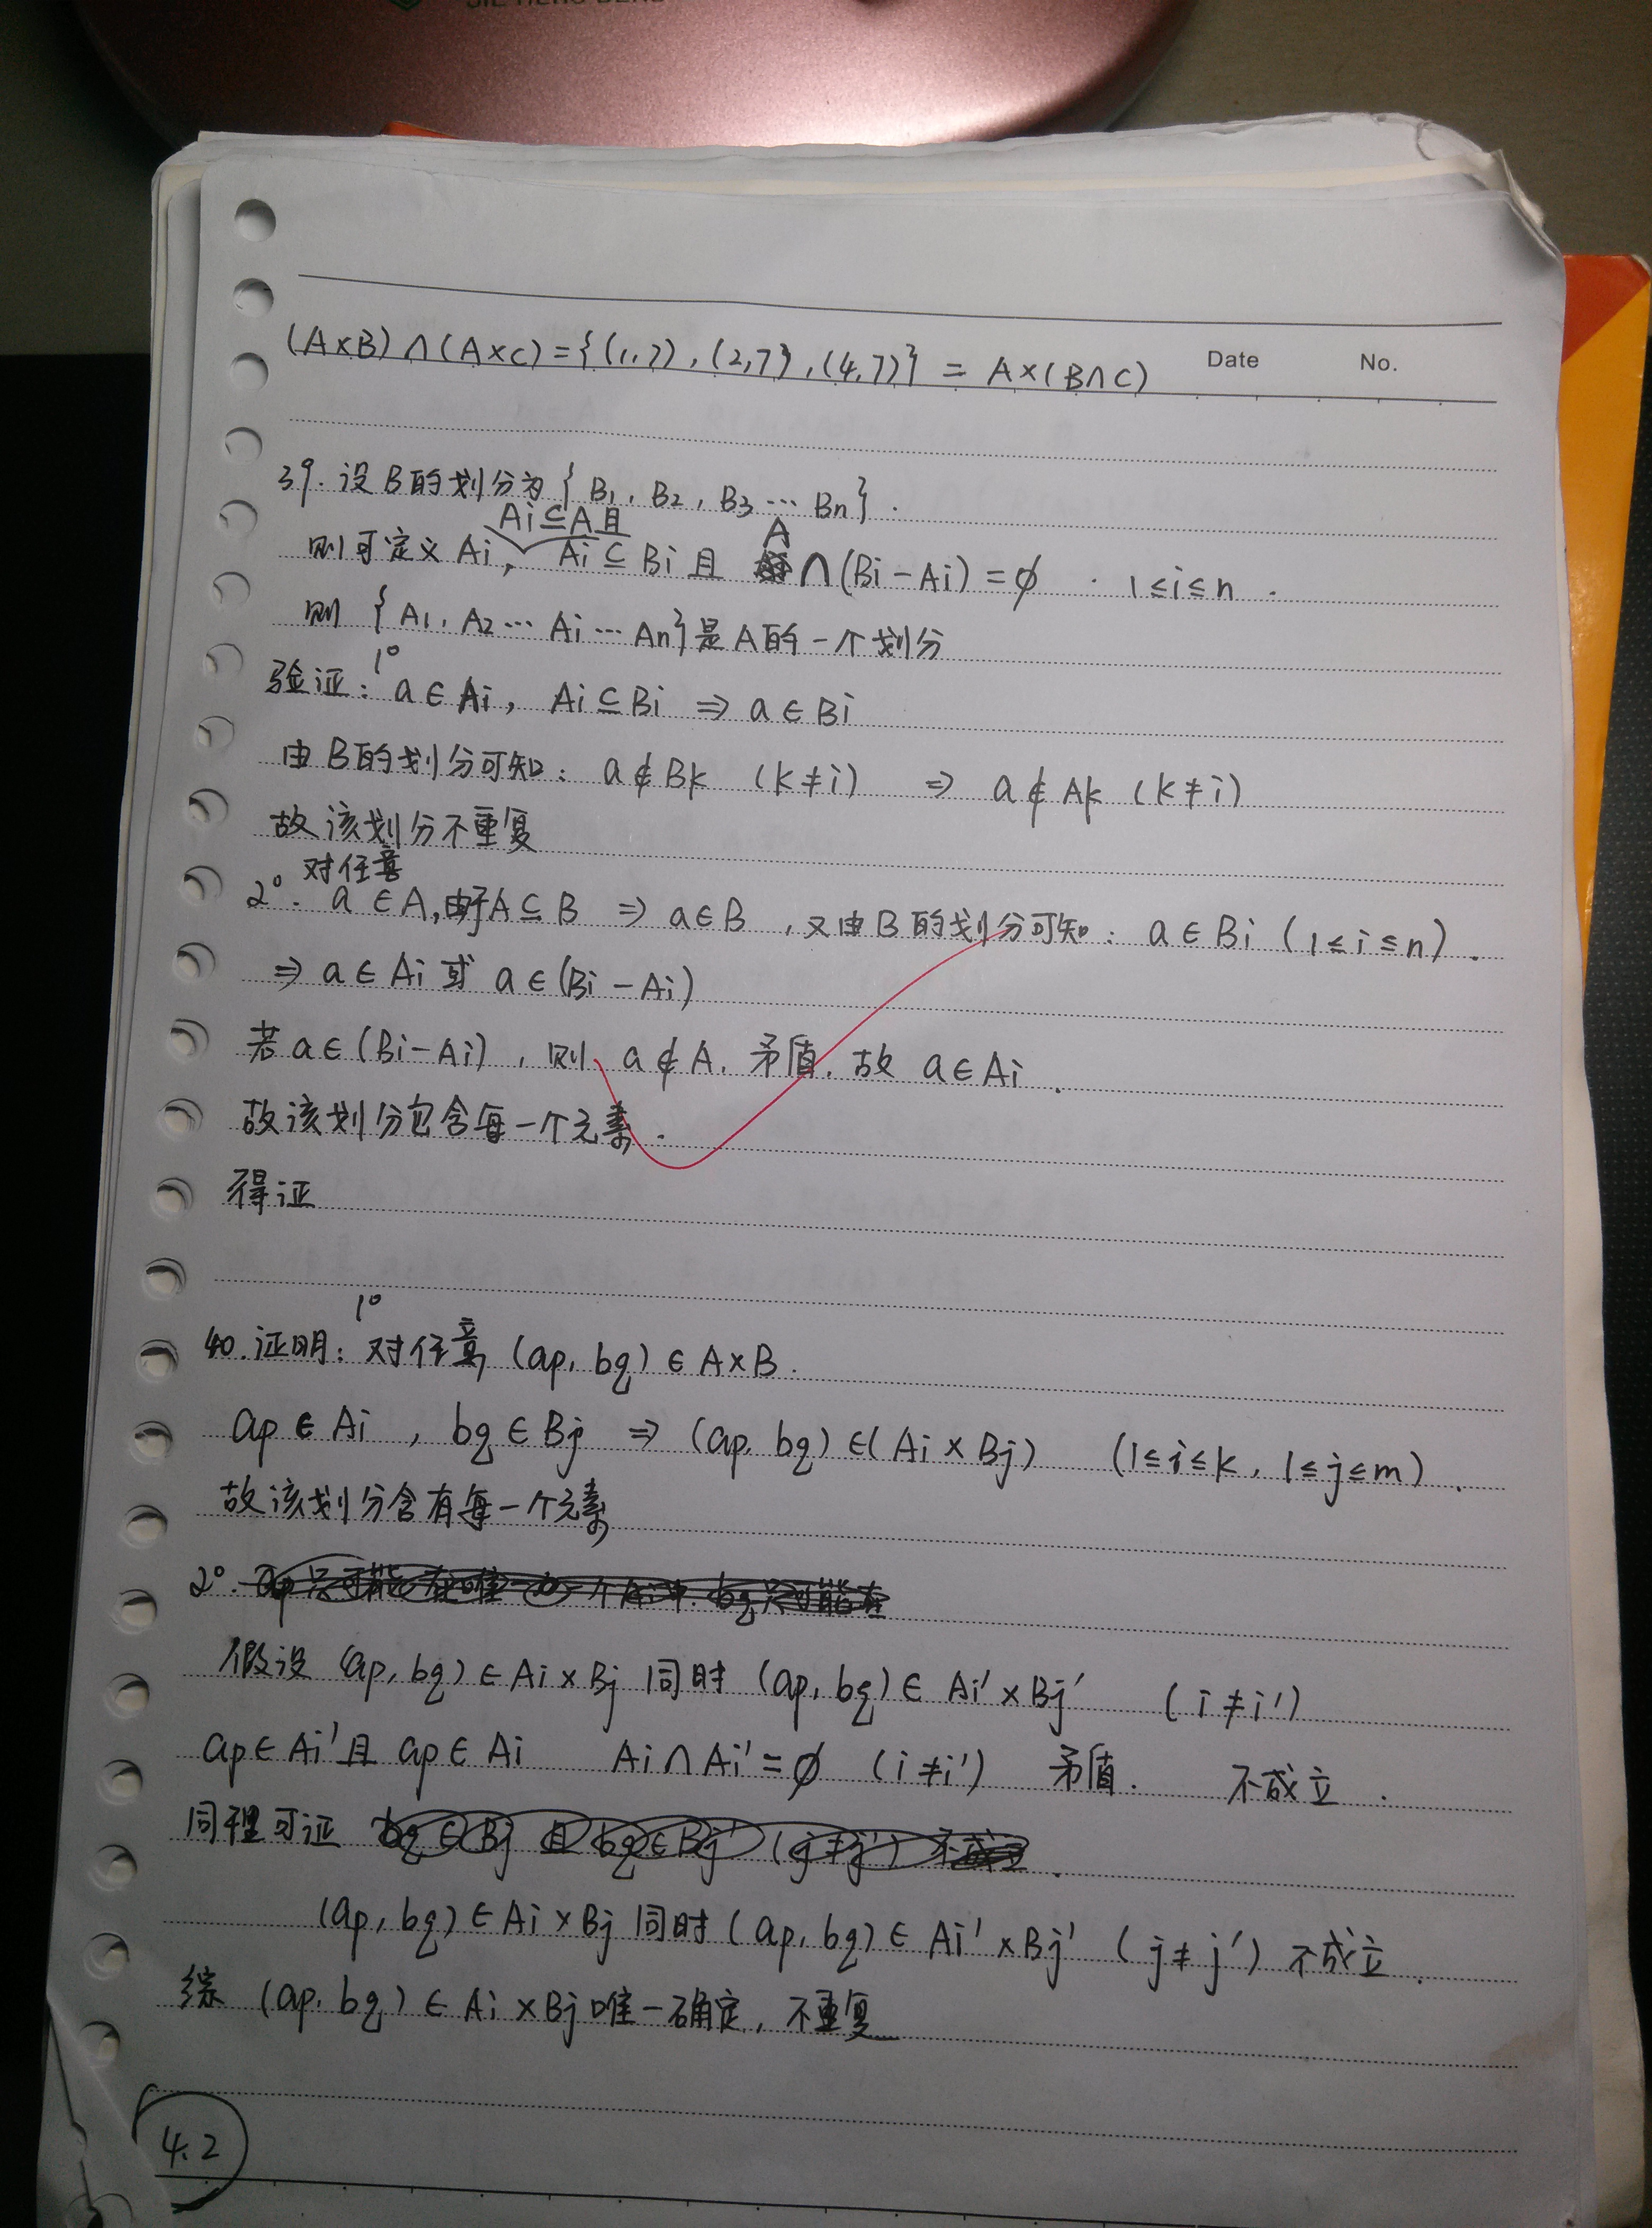 (A×B)∩(A×C)={(1,7),(2,7),(4,7)} = A×(B∩C)
Date No.
39. 设B的划分为{B1, B2, B3 … Bn}.
Ai⊆A且 A
则可定义Ai, Ai⊆Bi且 ∩(Bi-Ai)=∅ . 1≤i≤n .
则 {A1, A2 … Ai … An}是A的一个划分
1°
验证: a∈Ai, Ai⊆Bi ⇒ a∈Bi
由B的划分可知: a∉Bk (k≠i) ⇒ a∉Ak (k≠i)
故该划分不重复
对任意
2°. a∈A,由于A⊆B ⇒ a∈B ,又由B的划分可知: a∈Bi (1≤i≤n).
⇒ a∈Ai 或 a∈(Bi-Ai)
若a∈(Bi-Ai), 则 a∉A, 矛盾. 故 a∈Ai.
故该划分包含每一个元素.
得证
1°
40. 证明: 对任意 (ap, bq)∈A×B.
ap∈Ai , bq∈Bj ⇒ (ap, bq)∈(Ai×Bj) (1≤i≤k, 1≤j≤m).
故该划分含有每一个元素
2°.
假设 (ap, bq)∈Ai×Bj 同时 (ap, bq)∈Ai'×Bj' (i≠i')
ap∈Ai'且ap∈Ai Ai∩Ai'=∅ (i≠i') 矛盾. 不成立.
同理可证
(ap, bq)∈Ai×Bj同时(ap, bq)∈Ai'×Bj' (j≠j') 不成立.
综 (ap, bq)∈Ai×Bj唯一确定, 不重复
4.2